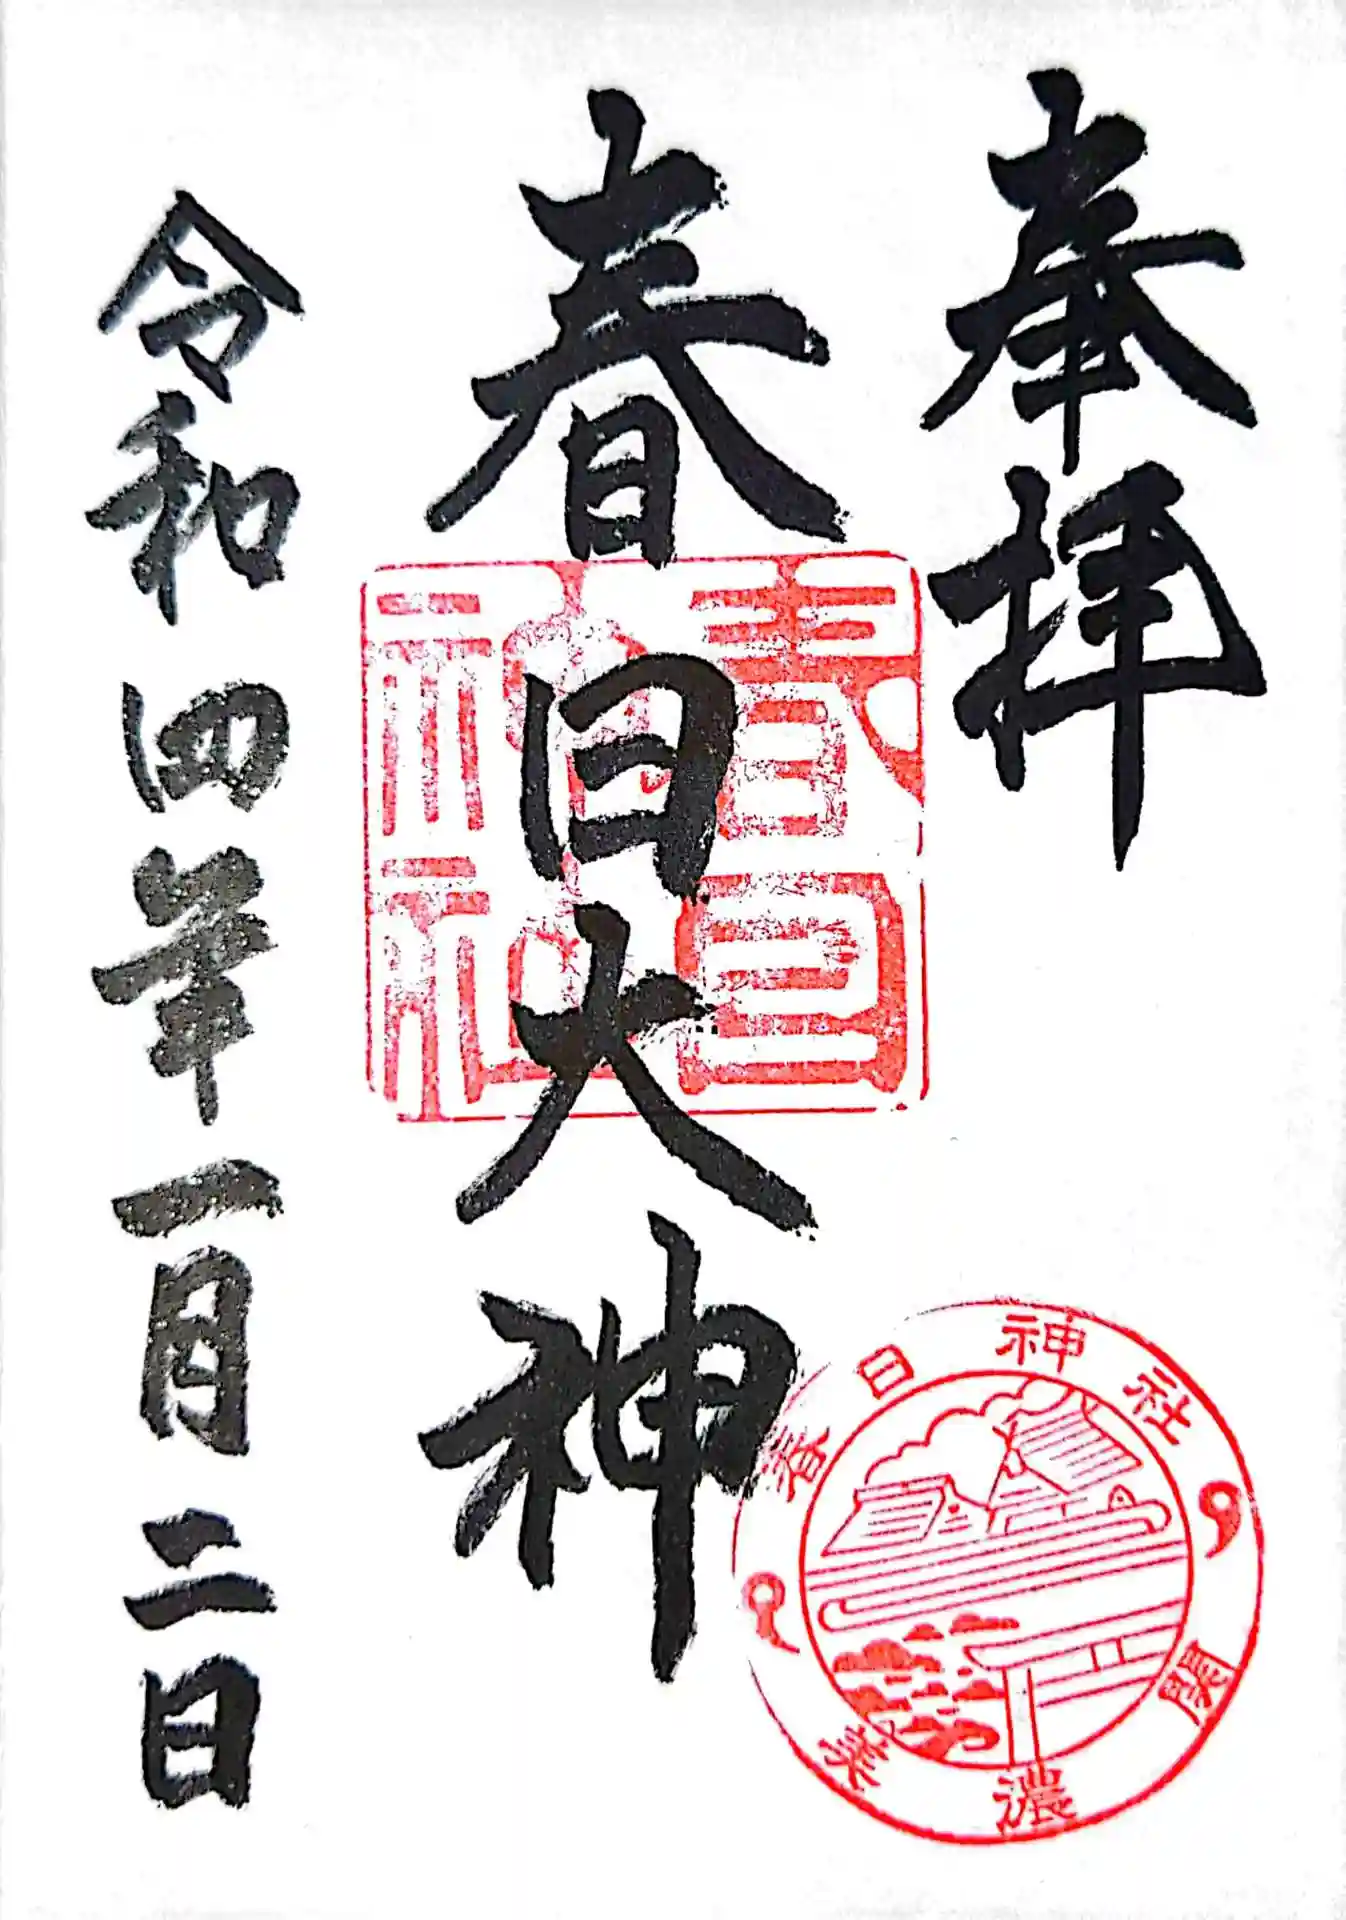 奉拝
春日大神
令和四年一月二日
春日神社
春日神社
美濃
関